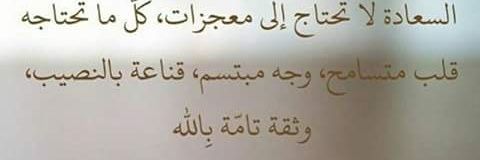 السعادة لا تحتاج إلى معجزات، كلّ ما تحتاجه
قلب متسامح، وجه مبتسم، قناعة بالنصيب،
وثقة تامّة بِالله